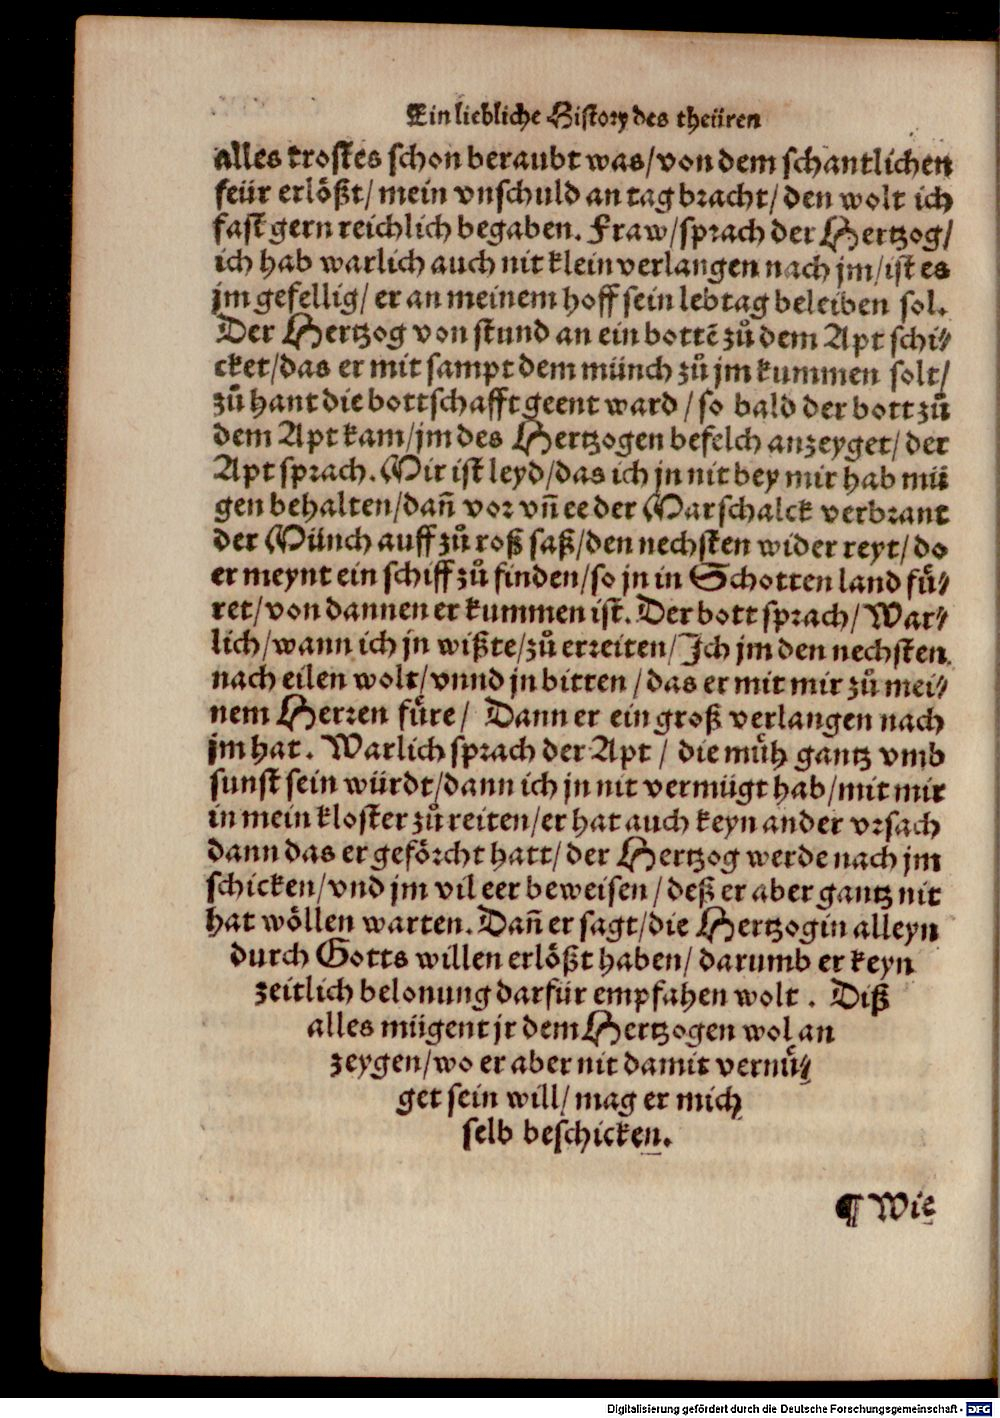 Ein liebliche History des theüren
alles trostes schon beraubt was/von dem schantlichen
feür erlößt/ mein vnschuld an tag bracht/ den wolt ich
fast gern reichlich begaben. Fraw/sprach der Hertzog/
ich hab warlich auch nit klein verlangen nach jm/ist es
jm gefellig/ er an meinem hoff sein lebtag beleiben sol.
Der Hertzog von stund an ein bottē zů dem Apt schi⸗
cket/das er mit sampt dem münch zů jm kummen solt/
zů hant die bottschafft geent ward / so bald der bott zů
dem Apt kam/jm des Hertzogen befelch anzeyget/ der
Apt sprach. Mir ist leyd/das ich jn nit bey mir hab mü
gen behalten/dañ vor vñ ee der Marschalck verbrant
der Münch auff zů roß saß/den nechsten wider reyt/ do
er meynt ein schiff zů finden/so jn in Schotten land fů⸗
ret/von dannen er kummen ist. Der bott sprach/ War⸗
lich/wann ich jn wißte/zů erreiten/Ich jm den nechsten
nach eilen wolt/vnnd jn bitten /das er mit mir zů mei⸗
nem Herren fůre/ Dann er ein groß verlangen nach
jm hat. Warlich sprach der Apt / die můh gantz vmb
sunst sein würdt/dann ich jn nit vermügt hab/mit mir
in mein kloster zů reiten/er hat auch keyn ander vrsach
dann das er geförcht hatt/der Hertzog werde nach jm
schicken/vnd jm vil eer beweisen /deß er aber gantz nit
hat wöllen warten. Dañ er sagt/die Hertzogin alleyn
durch Gotts willen erlößt haben/ darumb er keyn
zeitlich belonung darfür empfahen wolt . Diß
alles mügent jr dem Hertzogen wol an
zeygen/wo er aber nit damit vernů⸗
get sein will/ mag er mich
selb beschicken.
¶ Wie
Digitalisierung gefördert durch die Deutsche Forschungsgemeinschaft - DFG